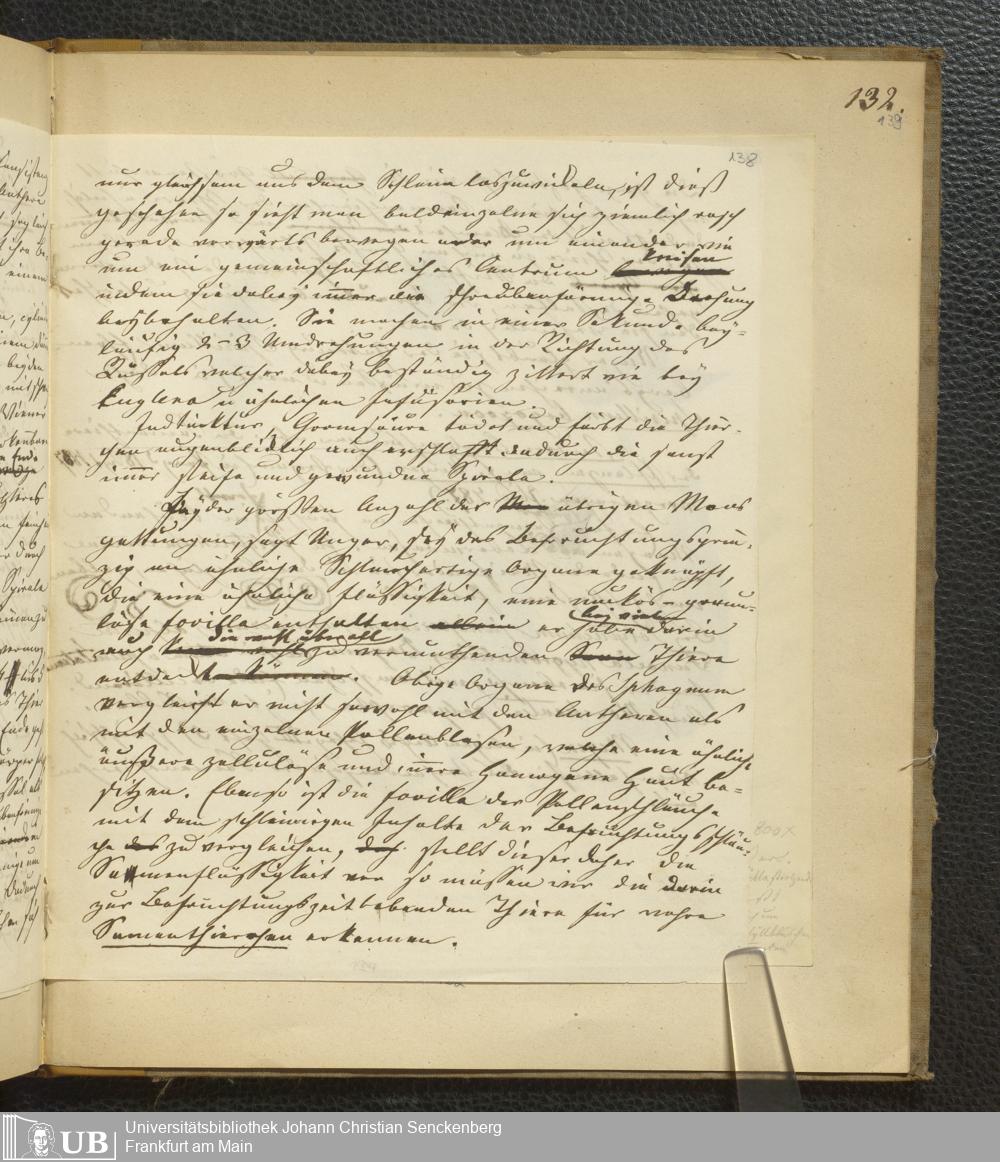 132.
139
138
nur gleichsam aus dem Schleim loszuwickeln, ist dieß
geschehen so sieht man bald einzelne sich ziemlich rasch
gerade vorwärts bewegen oder um einander wie
um ein gemeinschaftliches Centrum kreisen
indem sie dabey immer die schraubenförmige Drehung
beybehalten. Sie machen in einer Sekunde bey-
läufig 2-3 Umdrehungen in der Richtung des
Rüssels welcher dabey beständig zittert wie bey
Euglena u ähnlichen Infusorien.
Jodtinktur, tödet und färbt die Thier-
chen augenblicklich auch erschlafft dadurch die sonst
immer steife und gewundne Spirale.
Bey der größten Anzahl der übrigen Moos
gattungen, sagt Unger, sey das Befruchtungsprin-
zip an ähnliche Schlauchartige Organe geknüpft,
die eine ähnliche Flüssigkeit, eine mukös-granu-
löse fovilla enthalten er habe darin bey vielen
auch die wohl überall zu vermuthenden Thiere
entdeckt. Obige Organe des Sphagnum
vergleicht er nicht sowohl mit den Antheren als
mit den einzelnen Pollenblasen, welche eine ähnliche
äußere zellulöse und innere Homogene Haut be-
sitzen. Ebenso ist die fovilla der Pollenschläuche
mit dem schleimigen Inhalte der Befruchtungsschläu-
che zu vergleichen, stellt dieser daher die
Samenflüssigkeit vor so müssen wir die darin
zur Befruchtungszeit lebenden Thiere für wahre
Samenthierchen erkennen.
800x
UB
Universitätsbibliothek Johann Christian Senckenberg
Frankfurt am Main